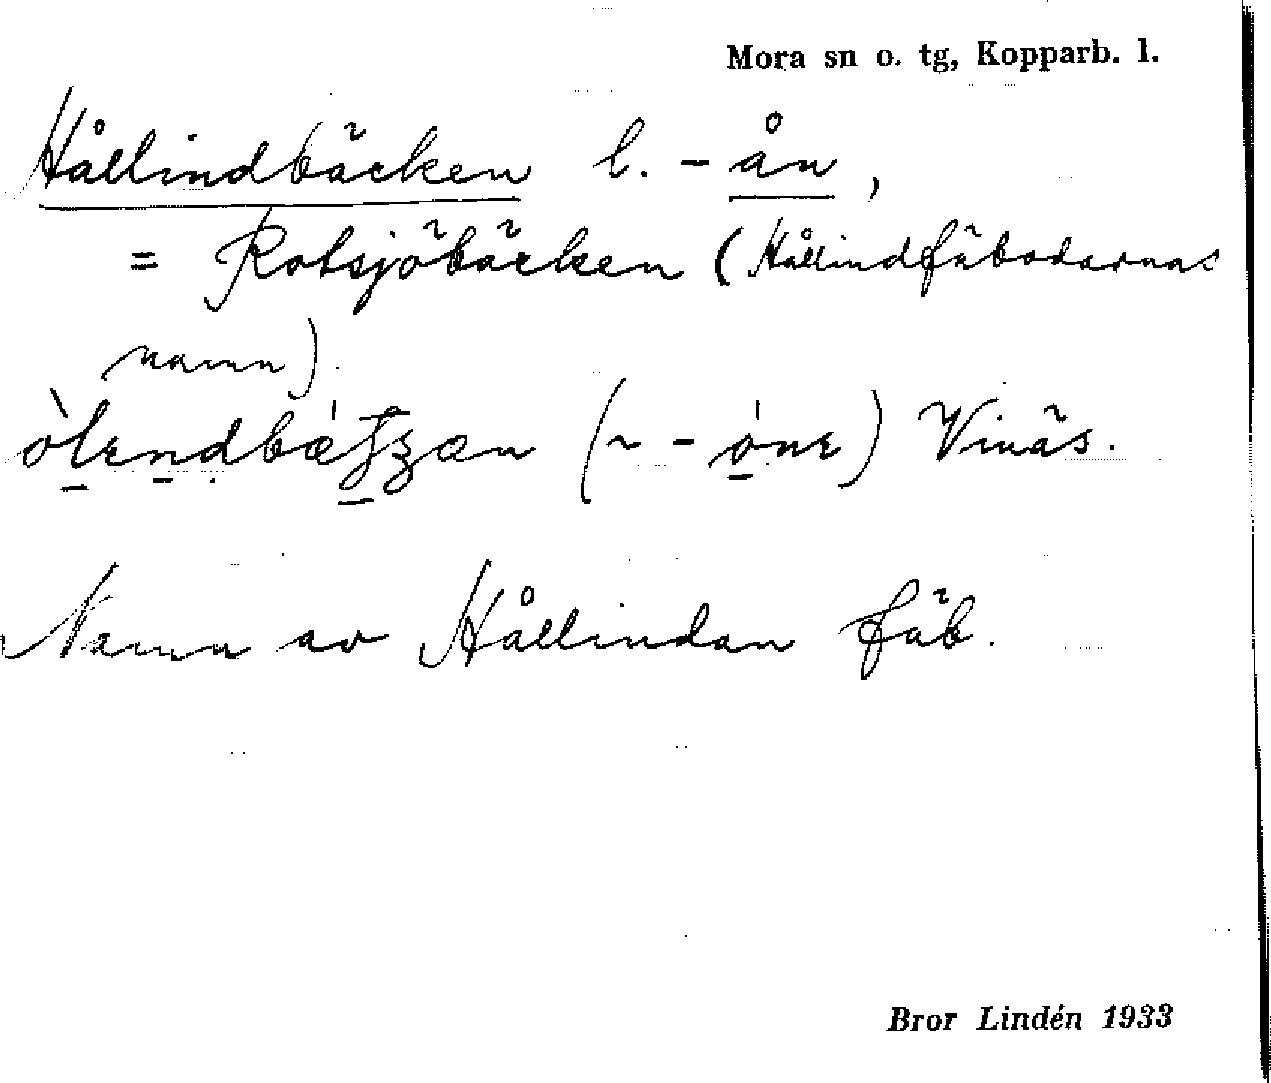 Mora sn o. tg, Kopparb. l.
Hållindbäcken l. -ån,
= Rotsjöbäcken (Hållindfäbodarnas
namn).
Vinäs.
Namn av Hållindan fäb.
Bror Lindén 1933